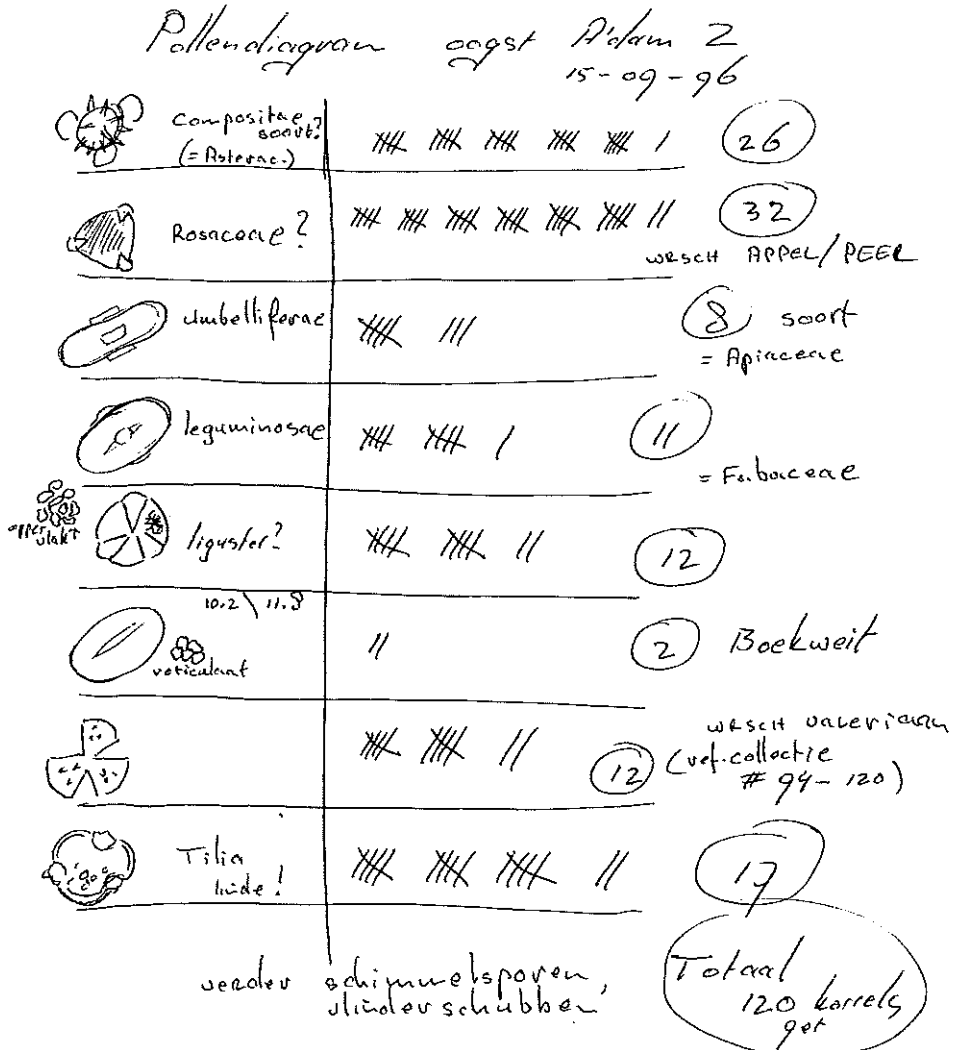 Pollendiagram oogst A'dam 2
15-09-96
Compositae soort?
(= Asterac.)
26
Rosaceae?
32
WRSCH APPEL/PEER
Umbelliferae
8 soort
= Apiaceae
leguminosae
11
= Fabaceae
opper
vlakt
liguster?
12
10.2 \ 11.8
reticulaat
2 Boekweit
12
WRSCH valeriaan
(ref. collectie
# 94-120)
Tilia
linde!
17
verder schimmelsporen,
vlinderschubben
Totaal
120 korrels